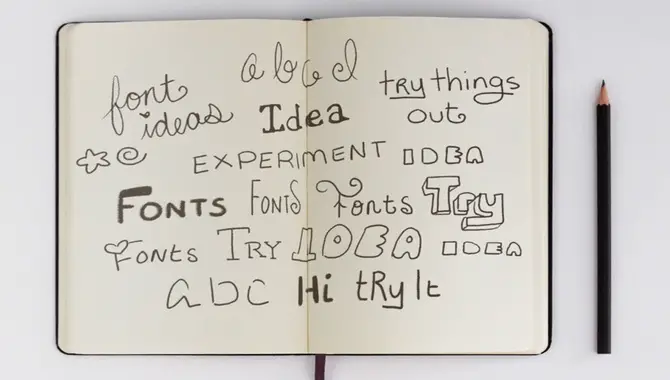 a b c d
font ideas
Idea
try things
out
EXPERIMENT IDEA
FONTS FONTS Fonts Try
Fonts TRY IDEA IDEA
a b c Hi tRy It